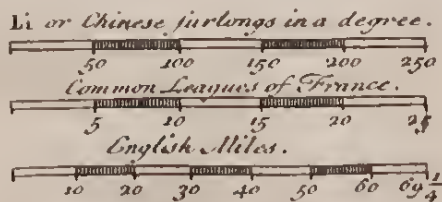 Li or Chinese furlongs in a degree.
50 100 150 200 250
Common Leagues of France.
5 10 15 20 25
English Miles.
10 20 30 40 50 60 69 1/4